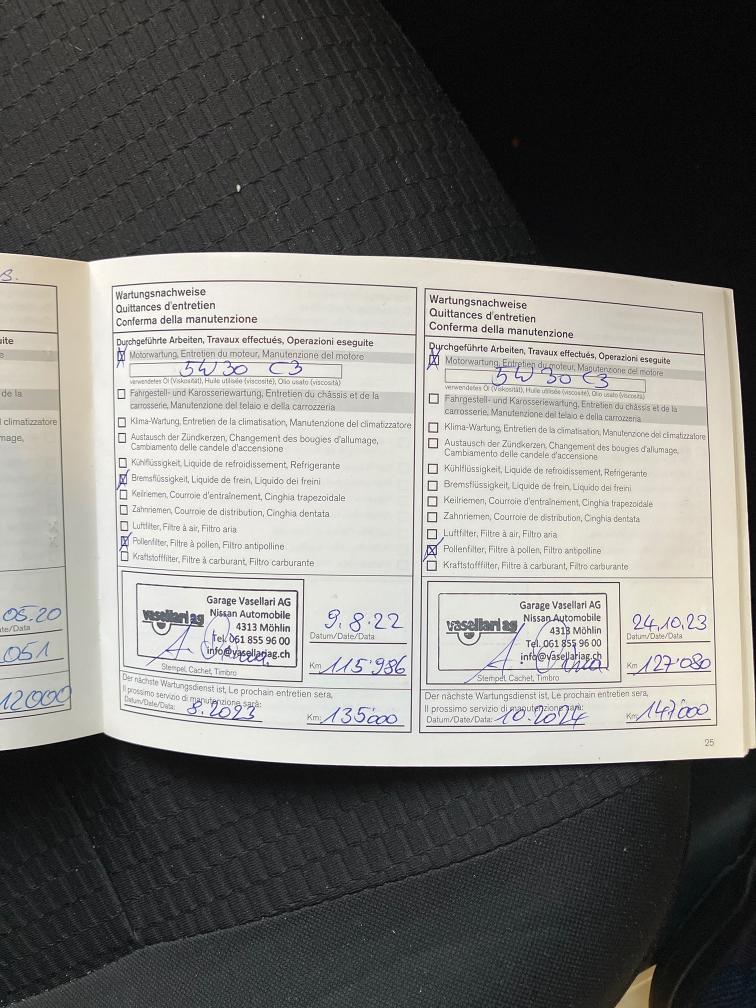 B.
uite
e
de la
l climatizzatore
mage,
05.20
ate/Data
051
12000
Wartungsnachweise
Quittances d'entretien
Conferma della manutenzione
Durchgeführte Arbeiten, Travaux effectués, Operazioni eseguite
Motorwartung, Entretien du moteur, Manutenzione del motore
5W30 C3
verwendetes Öl (Viskosität), Huile utilisée (viscosité), Olio usato (viscosità)
Fahrgestell- und Karosseriewartung, Entretien du châssis et de la
carrosserie, Manutenzione del telaio e della carrozzeria
Klima-Wartung, Entretien de la climatisation, Manutenzione del climatizzatore
Austausch der Zündkerzen, Changement des bougies d'allumage,
Cambiamento delle candele d'accensione
Kühlflüssigkeit, Liquide de refroidissement, Refrigerante
Bremsflüssigkeit, Liquide de frein, Liquido dei freini
Keilriemen, Courroie d'entraînement, Cinghia trapezoidale
Zahnriemen, Courroie de distribution, Cinghia dentata
Luftfilter, Filtre à air, Filtro aria
Pollenfilter, Filtre à pollen, Filtro antipolline
Kraftstofffilter, Filtre à carburant, Filtro carburante
vasellari ag
Garage Vasellari AG
Nissan Automobile
4313 Möhlin
Tel. 061 855 96 00
info@vasellariag.ch
Stempel, Cachet, Timbro
9.8.22
Datum/Date/Data
Km 115'986
Der nächste Wartungsdienst ist, Le prochain entretien sera,
Il prossimo servizio di manutenzione sarà:
Datum/Date/Data: 8.2023 Km: 135'000
Wartungsnachweise
Quittances d'entretien
Conferma della manutenzione
Durchgeführte Arbeiten, Travaux effectués, Operazioni eseguite
Motorwartung, Entretien du moteur, Manutenzione del motore
5W30 C3
verwendetes Öl (Viskosität), Huile utilisée (viscosité), Olio usato (viscosità)
Fahrgestell- und Karosseriewartung, Entretien du châssis et de la
carrosserie, Manutenzione del telaio e della carrozzeria
Klima-Wartung, Entretien de la climatisation, Manutenzione del climatizzatore
Austausch der Zündkerzen, Changement des bougies d'allumage,
Cambiamento delle candele d'accensione
Kühlflüssigkeit, Liquide de refroidissement, Refrigerante
Bremsflüssigkeit, Liquide de frein, Liquido dei freini
Keilriemen, Courroie d'entraînement, Cinghia trapezoidale
Zahnriemen, Courroie de distribution, Cinghia dentata
Luftfilter, Filtre à air, Filtro aria
Pollenfilter, Filtre à pollen, Filtro antipolline
Kraftstofffilter, Filtre à carburant, Filtro carburante
vasellari ag
Garage Vasellari AG
Nissan Automobile
4313 Möhlin
Tel. 061 855 96 00
info@vasellariag.ch
Stempel, Cachet, Timbro
24.10.23
Datum/Date/Data
Km 127'080
Der nächste Wartungsdienst ist, Le prochain entretien sera,
Il prossimo servizio di manutenzione sarà:
Datum/Date/Data: 10.2024 Km: 147'000
25